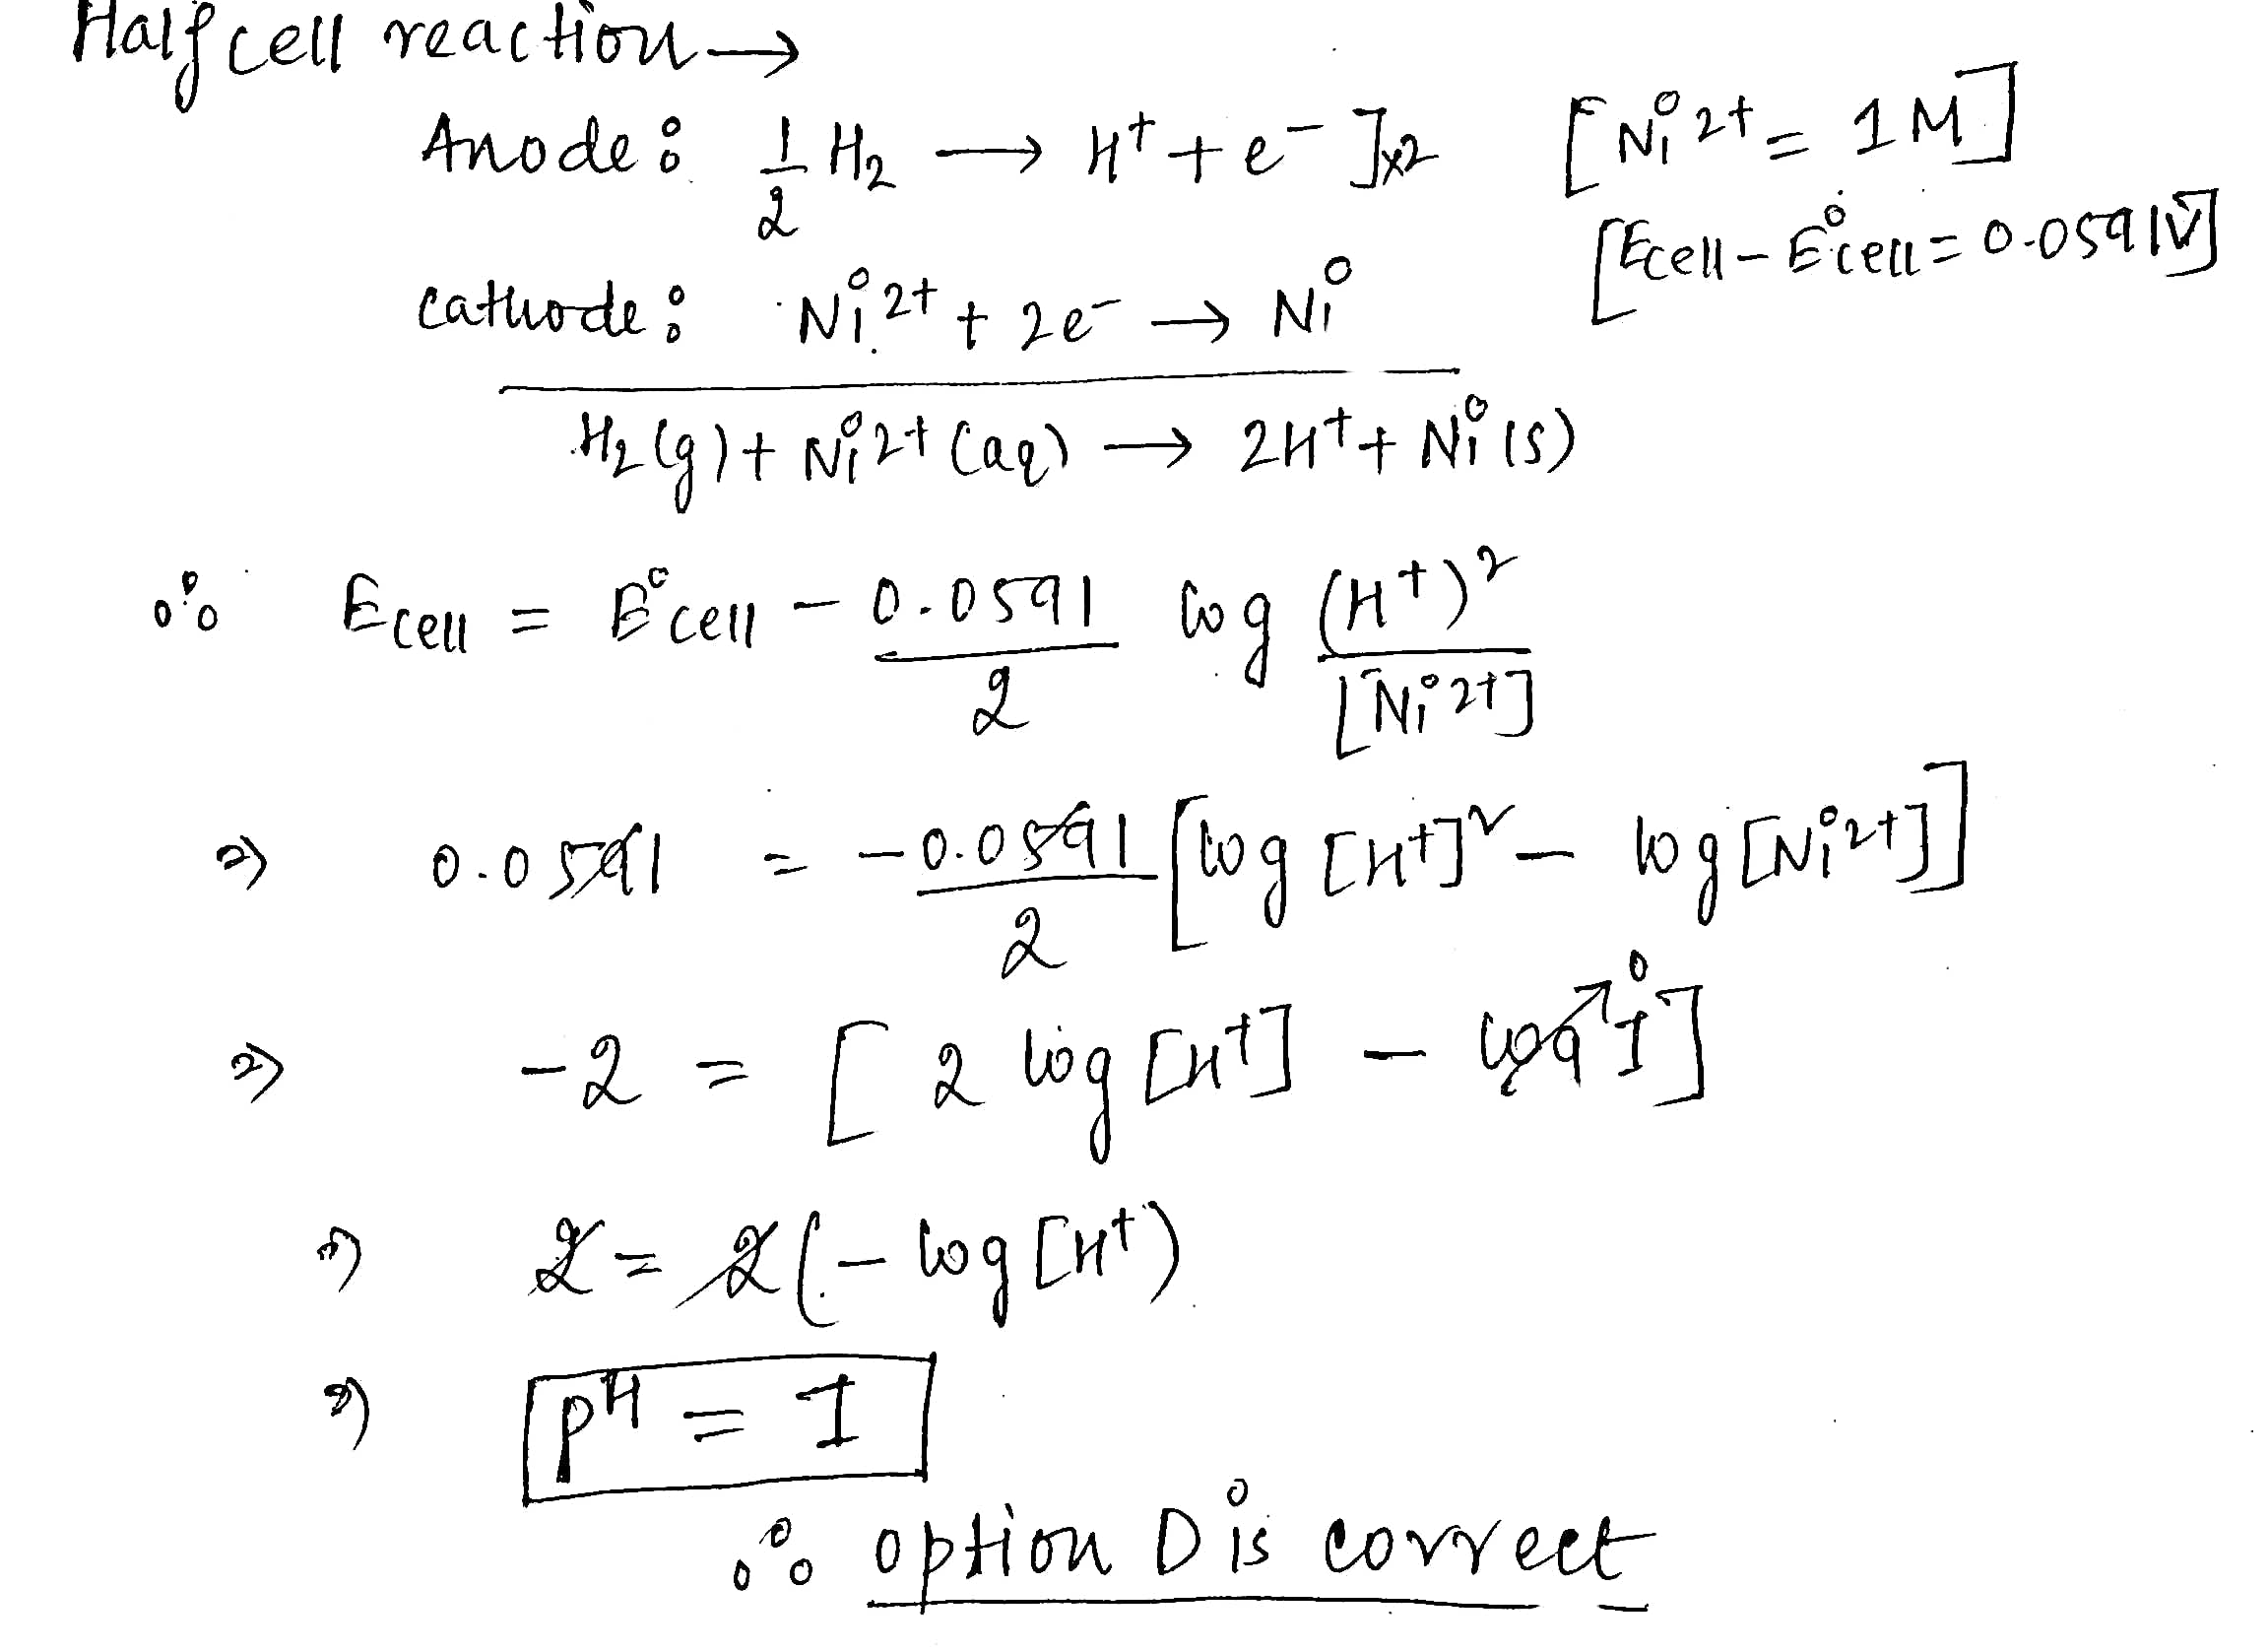 Half cell reaction →
Anode: 1/2 H₂ → H⁺ + e⁻ ]x2 [Ni²⁺ = 1M]
[Ecell - E°cell = 0.0591V]
cathode: Ni²⁺ + 2e⁻ → Ni
H₂(g) + Ni²⁺(aq) → 2H⁺ + Ni(s)
∴ Ecell = E°cell - 0.0591/2 log (H⁺)²/[Ni²⁺]
⇒ 0.0591 = -0.0591/2 [log [H⁺]² - log [Ni²⁺]]
⇒ -2 = [2 log [H⁺] - log 1] 0
⇒ 2 = 2(- log [H⁺)
⇒ pH = 1
∴ option D is correct